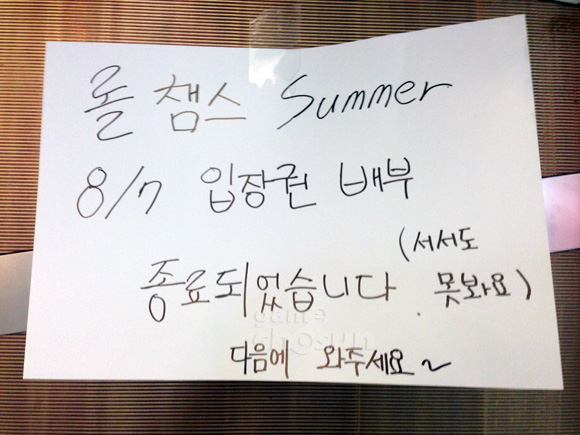 롤 챔스 Summer
8/7 입장권 배부
종료되었습니다. (서서도 못봐요)
다음에 와주세요~